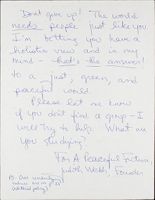 Don't give up! The world
needs people just like you
I'm betting you have a
holistic view and in my
mind - that's the answer!
to a just, green, and
peaceful world.
Please let me know
if you don't find a group - I
will try to help. What are
you studying?
For A Peaceful Future,
Judith Webb, Founder
PS. Our